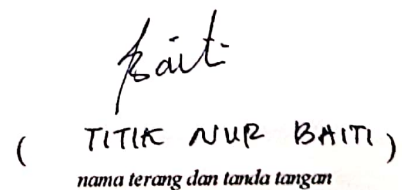 Baiti
( TITIK NUR BAITI )
nama terang dan tanda tangan